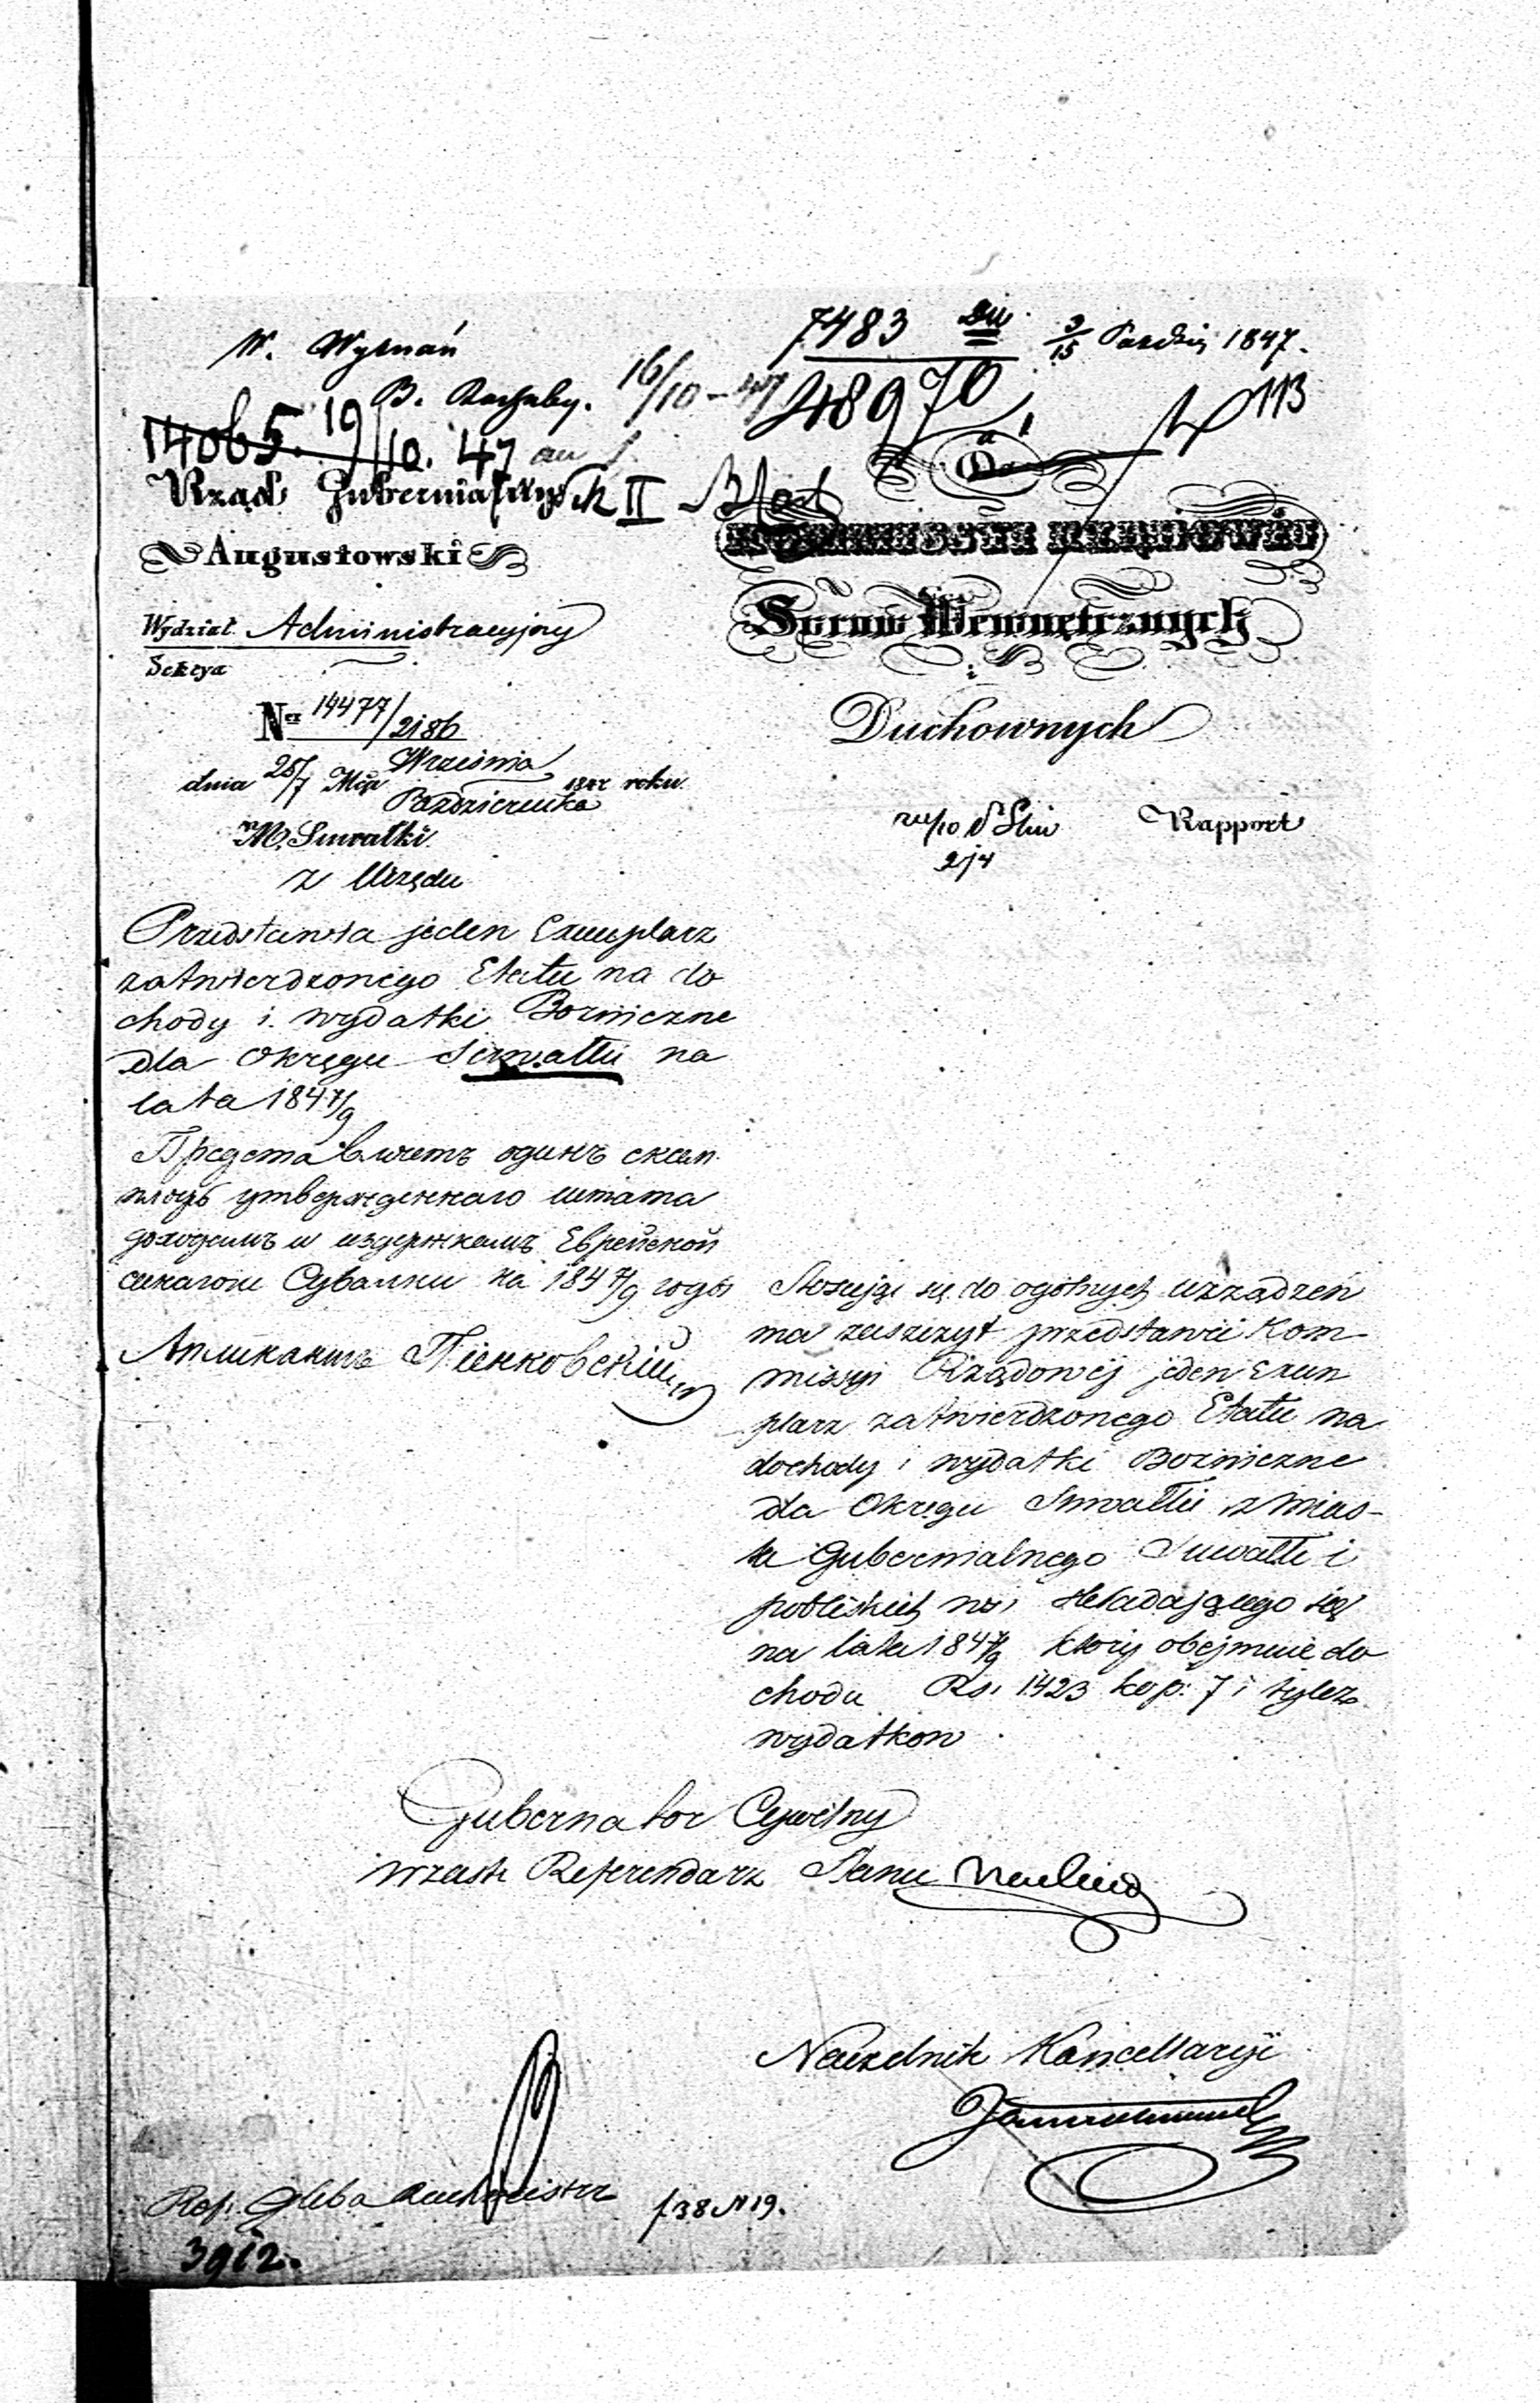 W. Wyznań
7483
3/15 Paździ 1847.
B. Rachuby. 16/10 - 47
48970
113
14065. 19/10. 47
Do
Rząd Gubernialny
II
Augustowski
Kommissyi Rządowéj
Spraw Wewnętrznych
i
Duchownych
Wydział Administracyjny
Sekcya
Ner 14477/2186
dnia 25/7 Mca Września
Października 1847 roku.
M. Suwałki.
z Urzędu
Rapport
Przedstawia jeden Exemplarz
zatwierdzonego Etatu na do
chody i wydatki Bożniczne
dla Okręgu Suwałki na
lata 1847/9
Представляетъ одинъ екзем
пляръ утвержденнаго штата
доходамъ и издержкамъ Еврейской
синагоги Сувалки на 1847/9 годы
Апликантъ Піенковскій
Stosując się do ogólnych urządzeń
ma zaszczyt przedstawić Kom-
missyi Rządowéj jeden Exem
plarz zatwierdzonego Etatu na
dochody i wydatki Bożniczne
dla Okręgu Suwałki z mias-
ta Gubernialnego Suwałk i
pobliskich wsi składającego się
na lata 1847/9 który obejmuie do
chodu Rs. 1423 kop: 7 i tyleż
wydatkow
Gubernator Cywilny
wzast. Referendarz Stanu
Naczelnik Kancellaryi
Ref. Gleba
f. 38 N 19.
3912.